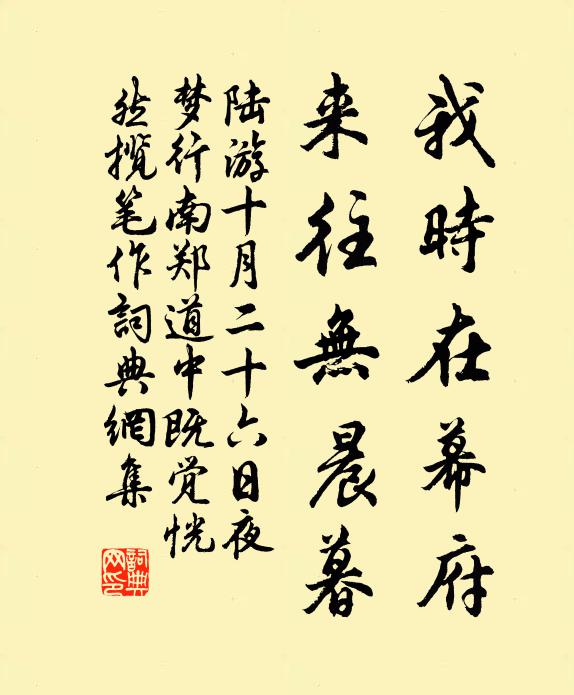 我時在幕府
来往無晨暮
陆游十月二十六日夜
梦行南郑道中既觉恍
然揽笔作詞典網集
詞典網印